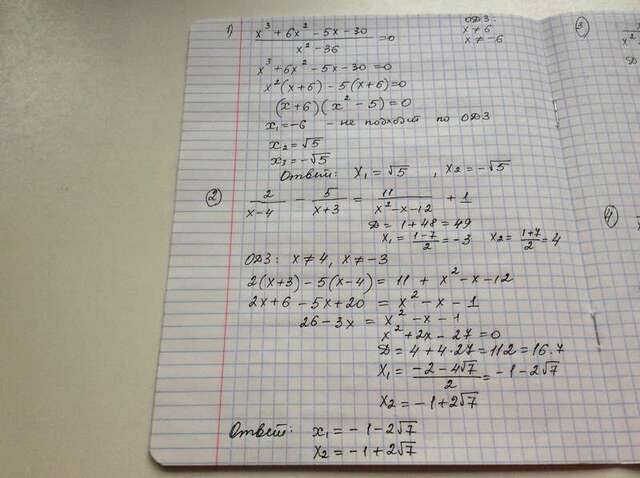 1) x³ + 6x² - 5x - 30 / x² - 36 = 0
ОДЗ
x ≠ 6
x ≠ -6
x³ + 6x² - 5x - 30 = 0
x²(x+6) - 5(x+6) = 0
(x+6)(x² - 5) = 0
x₁ = -6 - не подходит по ОДЗ
x₂ = √5
x₃ = -√5
Ответ: x₁ = √5, x₂ = -√5
2) 2/(x-4) - 5/(x+3) = 11/(x²-x-12) + 1
D = 1 + 48 = 49
x₁ = (1-7)/2 = -3 x₂ = (1+7)/2 = 4
ОДЗ: x ≠ 4, x ≠ -3
2(x+3) - 5(x-4) = 11 + x² - x - 12
2x + 6 - 5x + 20 = x² - x - 1
26 - 3x = x² - x - 1
x² + 2x - 27 = 0
D = 4 + 4·27 = 112 = 16·7
x₁ = (-2 - 4√7)/2 = -1 - 2√7
x₂ = -1 + 2√7
Ответ: x₁ = -1 - 2√7
x₂ = -1 + 2√7
3)
x²
D
4)